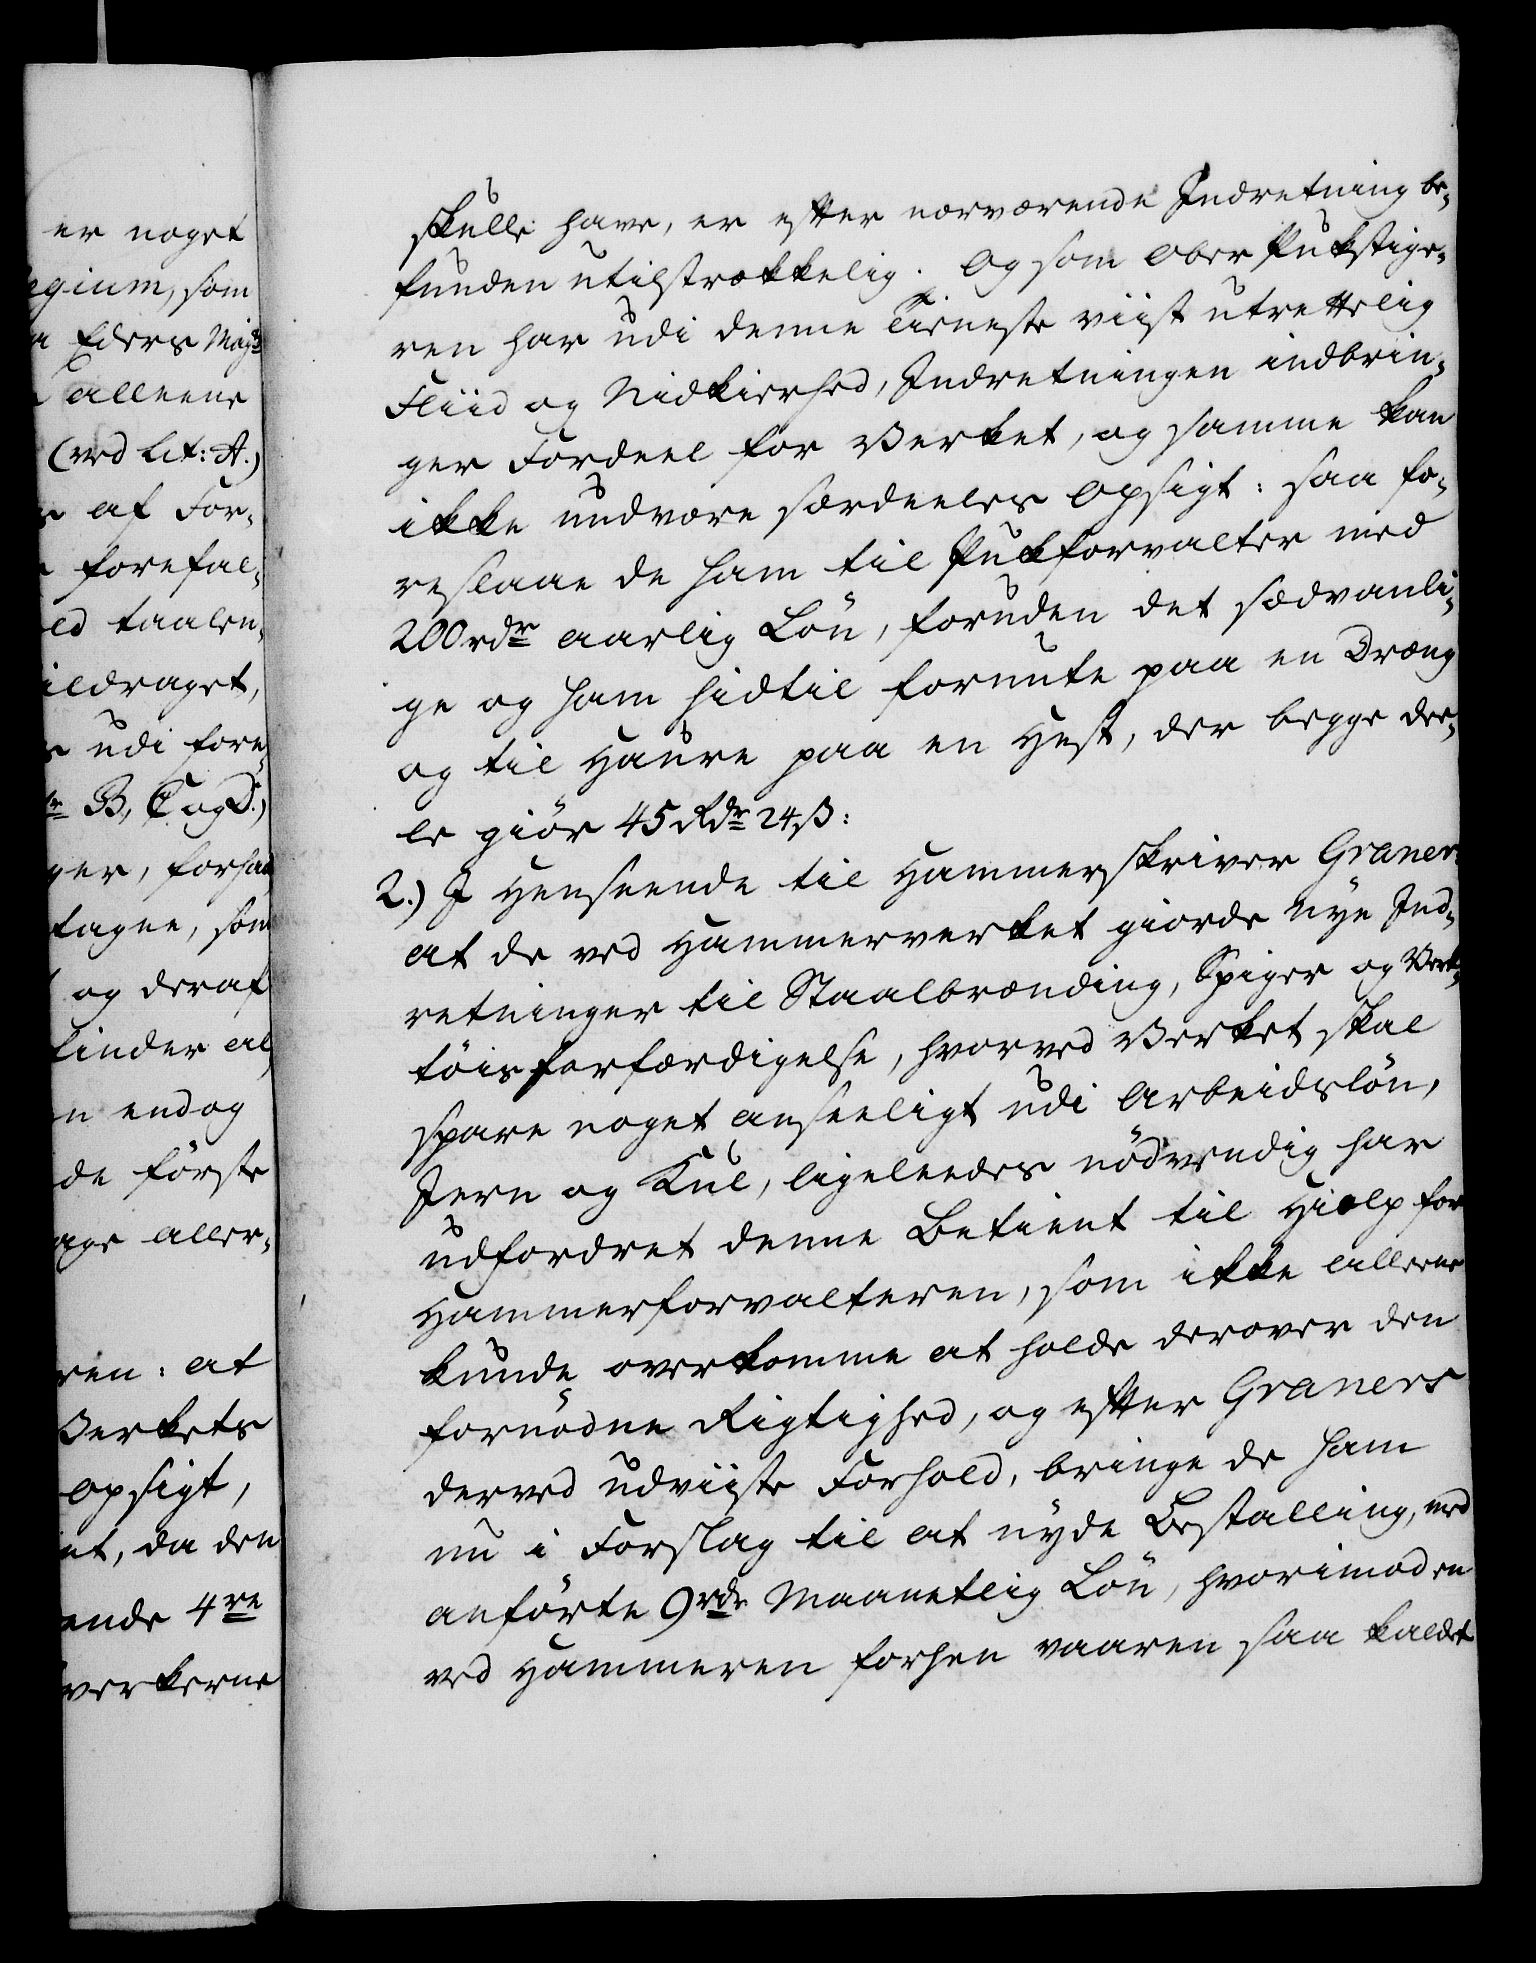 er noget
egium, som
a Eders Majts
alleene
(ved Lit: A.)
af For-
forefal-
ed taalen-
ildraget,
udi fore-
B, C og D.)
ger, forhaa
tagne, som
og deraf
finder al
n endog
de første
age aller-
ren: at
Verkets
Opsigt,
nt, da den
ende 4re
verkerne
skulle have, er efter nærværende Indretning be-
funden utilstrækkelig. Og som Ober Pukstige-
ren har udi denne Tieneste viist utrettelig
Fliid og Nidkierhed, Indretningen indbrin-
ger Fordeel for Verket, og samme kan
ikke undvære særdeeles Opsigt: saa fo-
reslaae de ham til Pukforvalter med
200 rdr aarlig Løn, foruden det sædvanli-
ge og ham hidtil forunte paa en Dræng
og til Haure paa en Hest, der begge dee-
le giør 45 Rdr 24 ß:
2.) I Henseende til Hammerskriver Graner:
at de ved Hammerverket giorde nye Ind-
retninger til Staalbrænding, Spiger og Verk-
tøisforfærdigelse, hvorved Verket skal
spare noget anseeligt udi Arbeidsløn,
Jern og Kul, ligeleedes nødvendig har
udfordret denne Betient til Hielp for
Hammerforvalteren, som ikke alleene
kunde overkomme at holde derover den
fornødne Rigtighed, og efter Graners
derved udviiste Forhold, bringe de ham
nu i Forslag til at nyde Bestalling, med
anførte 9 rdr Maanetlig Løn, hvorimod en
ved Hammeren forhen vaaren saa kaldet